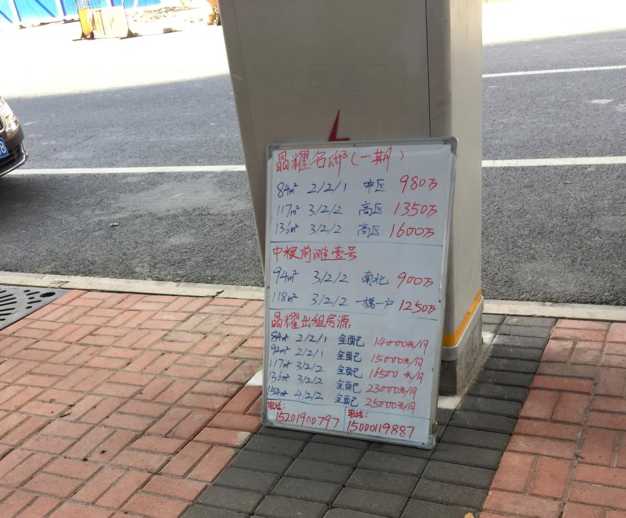 晶耀名邸(一期)
84㎡ 2/2/1 中区 980万
117㎡ 3/2/2 高区 1350万
136㎡ 3/2/2 高区 1600万
中粮前滩壹号
94㎡ 3/2/2 南北 900万
118㎡ 3/2/2 一梯一户 1250万
晶耀出租房源
84㎡ 2/2/1 全面已 14000元/月
92㎡ 2/2/1 全面已 15000元/月
117㎡ 3/2/2 全面已 16500元/月
136㎡ 3/2/2 全面已 23000元/月
4/2/2 全面已 25000元/月
电话: 电话:
15201900797 15000119887